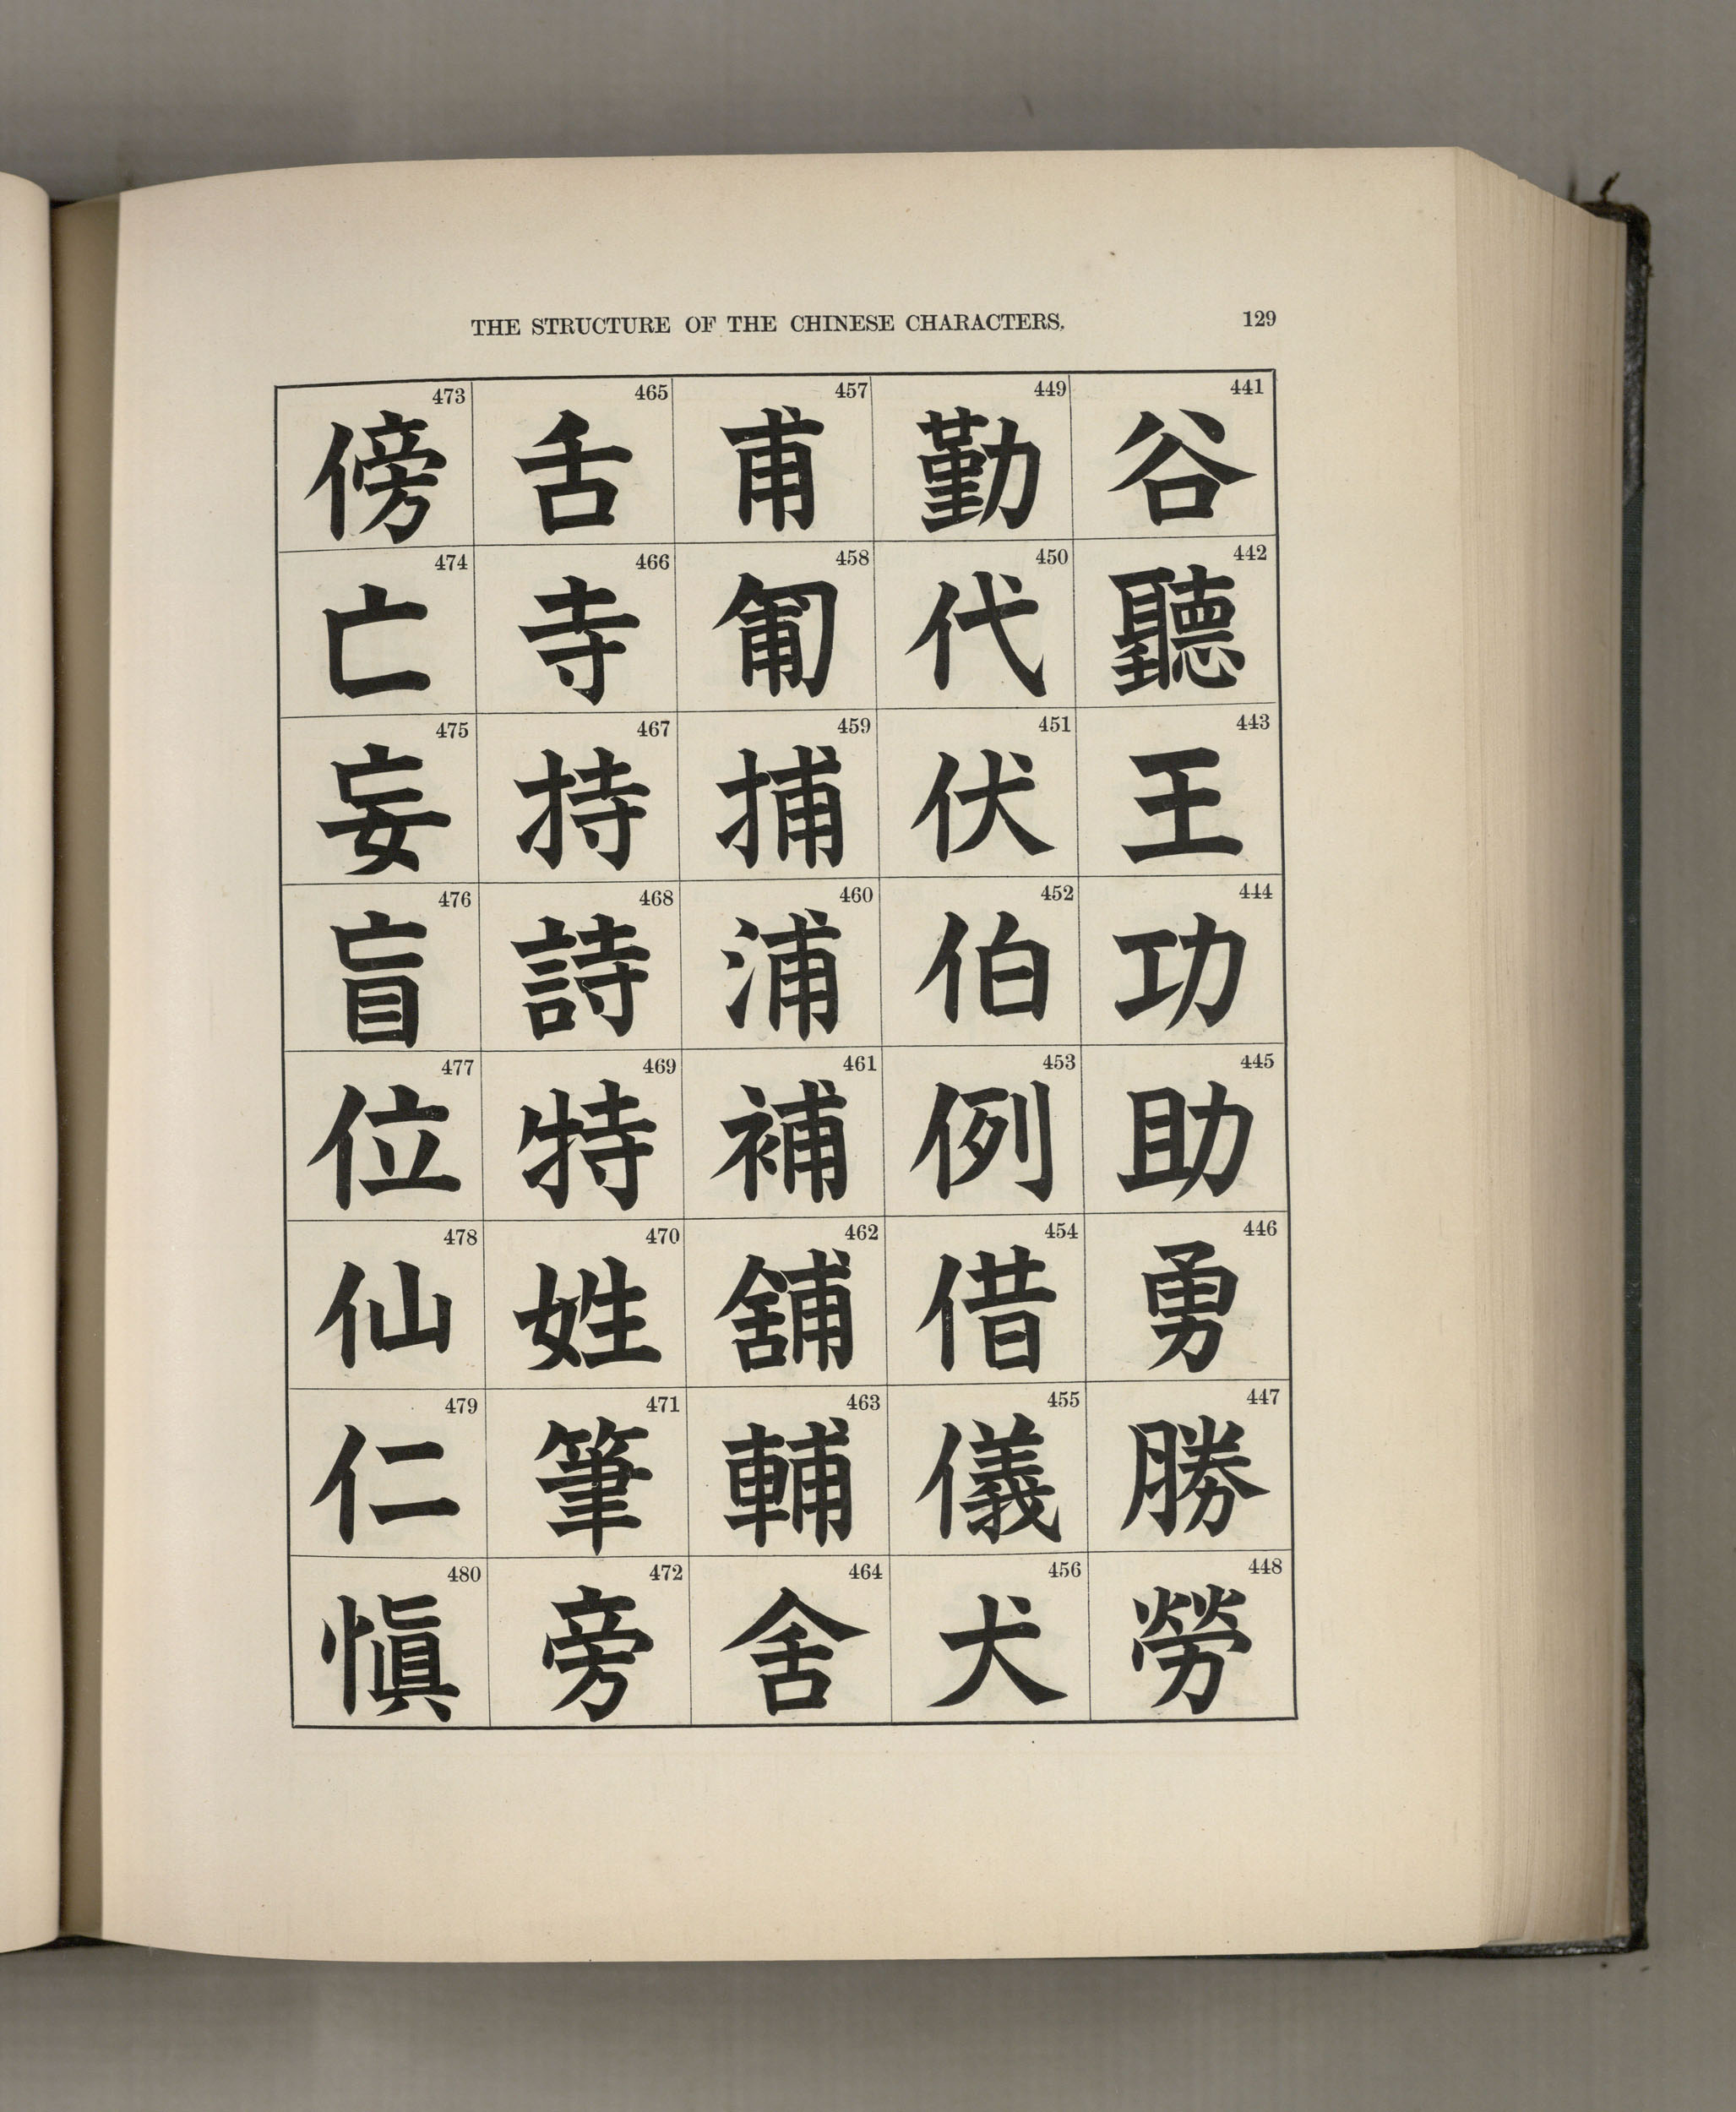 THE STRUCTURE OF THE CHINESE CHARACTERS. 129
441 谷
442 聽
443 王
444 功
445 助
446 勇
447 勝
448 勞
449 勤
450 代
451 伏
452 伯
453 例
454 借
455 儀
456 犬
457 甫
458 匍
459 捕
460 浦
461 補
462 舖
463 輔
464 舍
465 舌
466 寺
467 持
468 詩
469 特
470 姓
471 筆
472 旁
473 傍
474 亡
475 妄
476 盲
477 位
478 仙
479 仁
480 愼